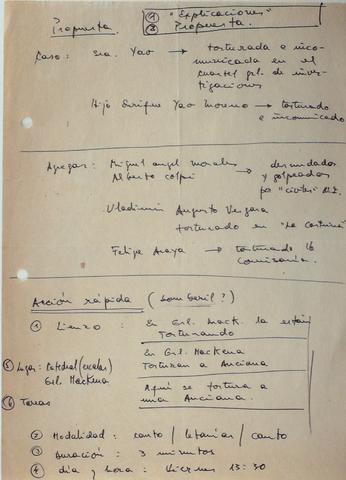 Propuesta
① "Explicaciones"
② Propuesta.
Caso: Sra. Yao → torturada e inco-
municada en el
cuartel gl. de inves-
tigaciones
Hijo Enrique Yao Moreno → torturado
e incomunicado
Agregar: Miguel Angel Morales
Alberto Colpi → desnudados
y golpeados
por "civiles"
Vladimir Augusto Vergara
torturado en "La
Felipe Araya → torturado 16
Comisaría.
Acción rápida (
① Lienzo: En Grl. Mack. la están
Torturando
En Grl. Mackena
Torturan a Anciana
Aquí se tortura a
una Anciana.
⑤ Lugar: Catedral (
Grl. Mackena
⑥ Tareas
② Modalidad: canto / letanías / canto
③ Duración: 3 minutos
④ día y hora: Viernes 13:30